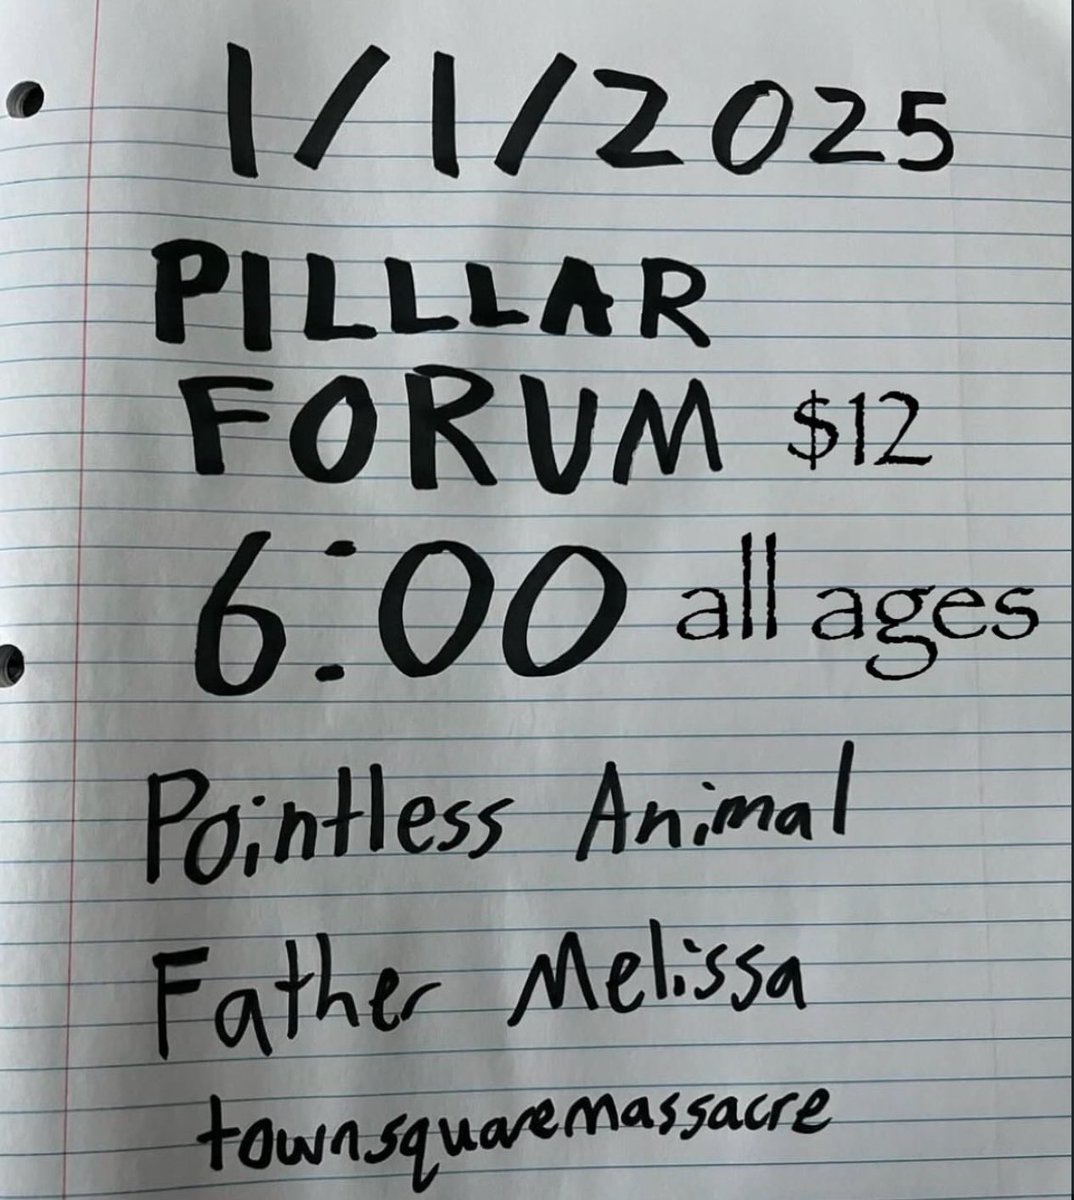 1/1/2025
PILLLAR
FORUM $12
6:00 all ages
Pointless Animal
Father Melissa
townsquaremassacre